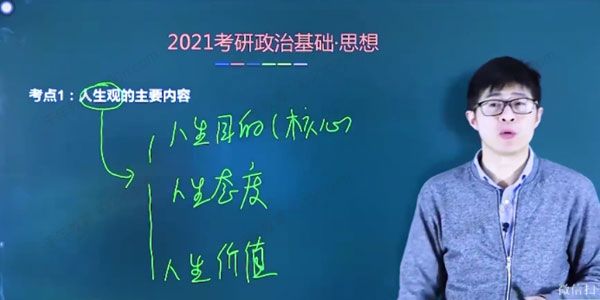 2021考研政治基础·思想
考点1：人生观的主要内容
人生目的(核心)
人生态度
人生价值
微信扫